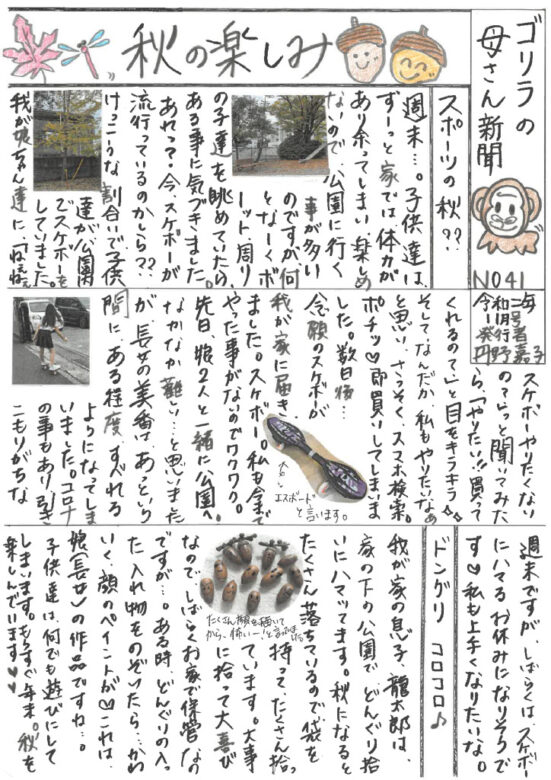 秋の楽しみ
ゴリラの
母さん新聞
NO41
令和二年
11月号
発行者
円野嘉子
スポーツの秋??
週末…。子供達は、
ずーっと家では体力が
あり余ってしまい、楽しめ
ないので、公園に行く
事が多い
のですが、何
となーくボ
ーット、周り
の子達を眺めていたら
ある事に気づきました。
あれっ?今、スケボーが
流行っているのかしら??
けっこうな割合いで子供
達が公園内
でスケボーを
していました。
我が娘ちゃん達に、「ねぇねぇ
スケボーやりたくない
の?」っと聞いてみた
ら、「やりたい!!買って
くれるの?」と目をキラキラ
そして、なんだか私もやりたいなぁ
と思い、さっそく、スマホ検索。
ポチッ♡即買いしてしまいま
した。数日後…
念願のスケボーが
我が家に届き
ました。スケボー。私も今まで
やった事がないのでワクワク。
先日、娘2人と一緒に公園へ。
なかなか難しい…と思いました
が、長女の美香は、あっという
間に、ある程度、すべれる
ようになってしま
いました。コロナ
の事もあり、引き
こもりがちな
エスボード
と言います。
週末ですが、しばらくは、スケボー
にハマるお休みになりそうで
す♡私も上手くなりたいな。
ドングリ コロコロ♪
我が家の息子、龍太郎は、
家の下の公園で、どんぐり拾
いにハマッてます。秋になると
たくさん落ちているので袋を
持って、たくさん拾っ
ています。大事
に拾って大喜び
なので、しばらくお家で保管なの
ですが…。ある時、どんぐりの入っ
た入れ物をのぞいたら…かわ
いく顔のペイントが♡これは
娘(長女)の作品ですね…。
子供達は、何でも遊びにして
しまいます。もうすぐ年末。秋を
楽しんでいます♡♡
たくさん顔を描いて
から、怖いー!と言ってました